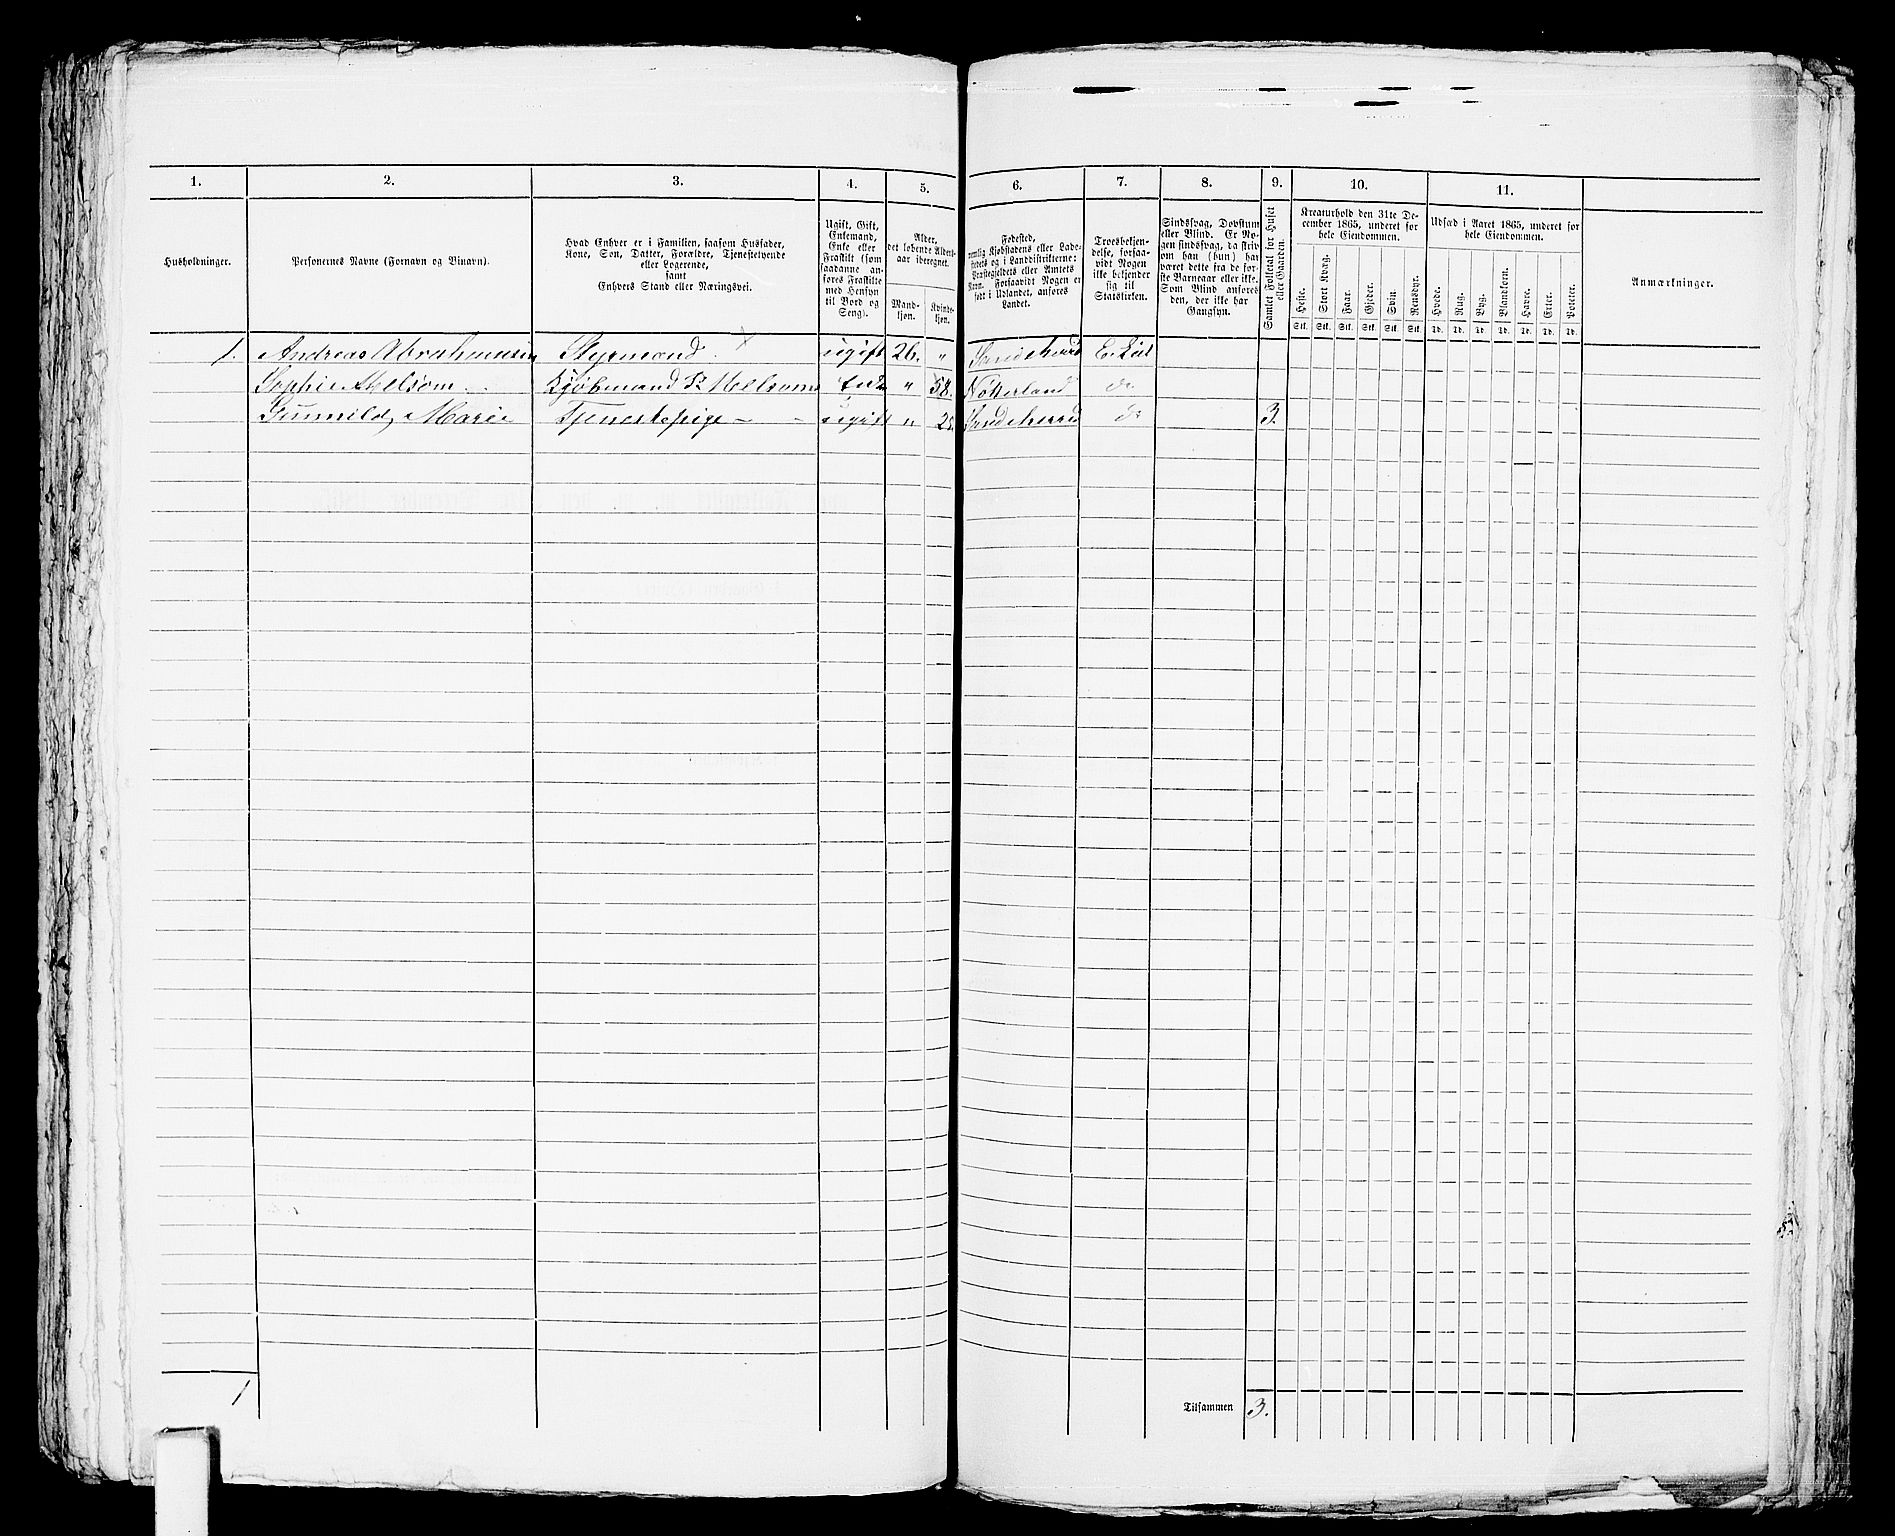 1. 2. 3. 4. 5. 6. 7. 8. 9. 10. 11.
Husholdninger.
Personernes Navne (Fornavn og Binavn).
Hvad Enhver er i Familien, saasom Husfader,
Kone, Søn, Datter, Forældre, Tjenestetyende
eller Logerende,
samt
Enhvers Stand eller Næringsvei.
Ugift, Gift,
Enkemand,
Enke eller
Fraskilt (som
saadanne an-
føres Fraskilte
med Hensyn
til Bord og
Seng).
Alder,
det løbende Alders-
aar iberegnet.
Mand-
kjøn.
Kvinde-
kjøn.
Fødested,
nemlig Kjøbstadens eller Lade-
stedets og i Landdistrikterne:
Præstegjeldets eller Amtets
Navn. Forsaavidt Nogen er
født i Udlandet, anføres
Landet.
Troesbekjen-
delse, forsaa-
vidt Nogen
ikke bekjender
sig til
Statskirken.
Sindssvag, Døvstum
eller Blind. Er No-
gen sindssvag, da skriv
om han (hun) har
været dette fra de før-
ste Barneaar eller ikke.
Som Blind anføres
den, der ikke har
Gangsyn.
Samlet Folketal for Huset
eller Gaarden.
Kreaturhold den 31te De-
cember 1865, underet for
hele Eiendommen.
Heste. Stort Kvæg. Faar. Gjeder. Svin. Rensdyr.
Stk. Stk. Stk. Stk. Stk. Stk.
Udsæd i Aaret 1865, underet for
hele Eiendommen.
Hvede. Rug. Byg. Blandkorn. Havre. Erter. Poteter.
Td. Td. Td. Td. Td. Td. Td.
Anmærkninger.
1. Andreas Abrahamsen Styrmand ugift 26. " Sandeherred
Sophie Axelsom Kjøbmand Enke " 58. Nøtterland do
Gunnild Marie Tjenestepige ugift " Sandeherred do 3.
1 Tilsammen 3.